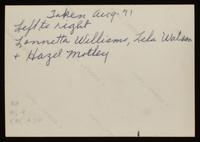 Taken Aug. 71
Left to right
Lonnetta Williams, Lela Watson
+ Hazel Motley